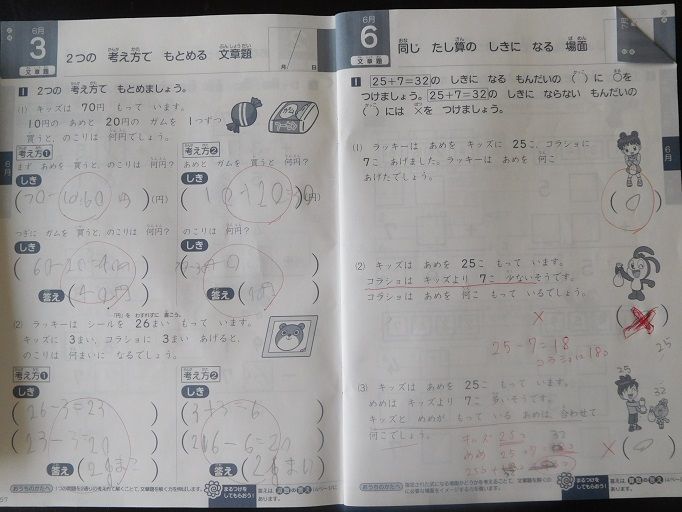 6月
3
文章題
2つの 考え方で もとめる 文章題
月 日
1 2つの 考え方で もとめましょう。
(1) キッズは 70円 もって います。
10円の あめと 20円の ガムを 1つずつ
買うと、のこりは 何円でしょう。
考え方1
まず あめを 買うと、のこりは 何円?
しき
(70-10=60円)(円)
つぎに ガムを 買うと、のこりは 何円?
しき
(60-20=40円)
答え (40円)
考え方2
あめと ガムを 買うと 何円?
しき
(10+20=30)(円)
のこりは 何円?
しき
答え
「円」を わすれずに 書こう。
(2) ラッキーは シールを 26まい もって います。
キッズに 3まい、コラショに 3まい あげると、
のこりは 何まいに なるでしょう。
考え方1
しき
(26-3=23)
(23-3=20)
答え
考え方2
しき
(3+3=6)
(26-6=20)
答え
おうちのかたへ
まるつけを
してもらおう!
57
6月
6月
6
文章題
同じ たし算の しきに なる 場面
1 25+7=32の しきに なる もんだいの ( )に ○を
つけましょう。25+7=32の しきに ならない もんだいの
( )には ×を つけましょう。
(1) ラッキーは あめを キッズに 25こ、コラショに
7こ あげました。ラッキーは あめを 何こ
あげたでしょう。
(○)
(2) キッズは あめを 25こ もって います。
コラショは キッズより 7こ 少ないそうです。
コラショは あめを 何こ もって いるでしょう。
×
25-7=18
25
(3) キッズは あめを 25こ もって います。
めめは キッズより 7こ 多いそうです。
キッズと めめが もって いる あめは 合わせて
何こでしょう。
25
32
キッズ 25こ
めめ 25+7=32
× (○)
おうちのかたへ
まるつけを
してもらおう!
6月